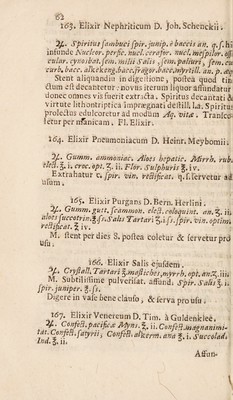 62
163. Elixir Nephriticum D. Joh. Schenckii.
♃. Spiritus sambuci spir. junip. è baccis an. q. s.
infunde Nuclear. persic. nucl. cerasor. nucl. mespilor.
cular. cynosbat. sem. milii Solis, sem. paliuri, sem.
rurb. bacc. alkekeng. bacc. fragor. bacc. myrtill. an. p. æq.
Stent aliquandiu in digestione, postea quod
ctum est decantetur: novus iterum liquor affundatur
donec omnes vis fuerit extracta. Spiritus decantati &
virtute lithontriptica imprægnati destill. l. a. Spiritus
prolectus edulcoretur ad modum Aq. vitæ. Transco-
letur per manicam. Fl. Elixir.
164. Elixir Pneumoniacum D. Heinr. Meybomii.
♃. Gumm. ammoniac. Aloes hepatic. Mirrh. rub.
elect. ʒ. i. croc. opt. ʒ. ii. Flor. Sulphuris ʒ. iv.
Extrahatur c. spir. vin. rectificat. q. s. servetur ad
usum.
165. Elixir Purgans D. Bern. Herlini.
♃. Gumm. gutt. scammon. elect. coloquint. an. ʒ. iii.
aloes succotrin. ℥. ss. Salis Tartari ʒ. i. ss. spir. vin. optim.
rectificat. ℥ iv.
M. stent per dies 8. postea coletur & servetur pro
usu.
166. Elixir Salis ejusdem.
♃. Crystall. Tartari ℥. mastiches, myrrh. opt. an. ʒ. iii.
M. Subtilissime pulverisat. affund. Spir. Salis ℥. i.
spir. juniper. ℥. ss.
Digere in vase bene clauso, & serva pro usu.
167. Elixir Venereum D. Tim. à Guldenklee.
♃. Confect. pacificæ Myns. ℥. ii. Confect. magnanimi-
tat. Confect. satyrii, Confect. alkerm. ana ℥. i. Succolad.
Ind. ℥. ii.
Affun-